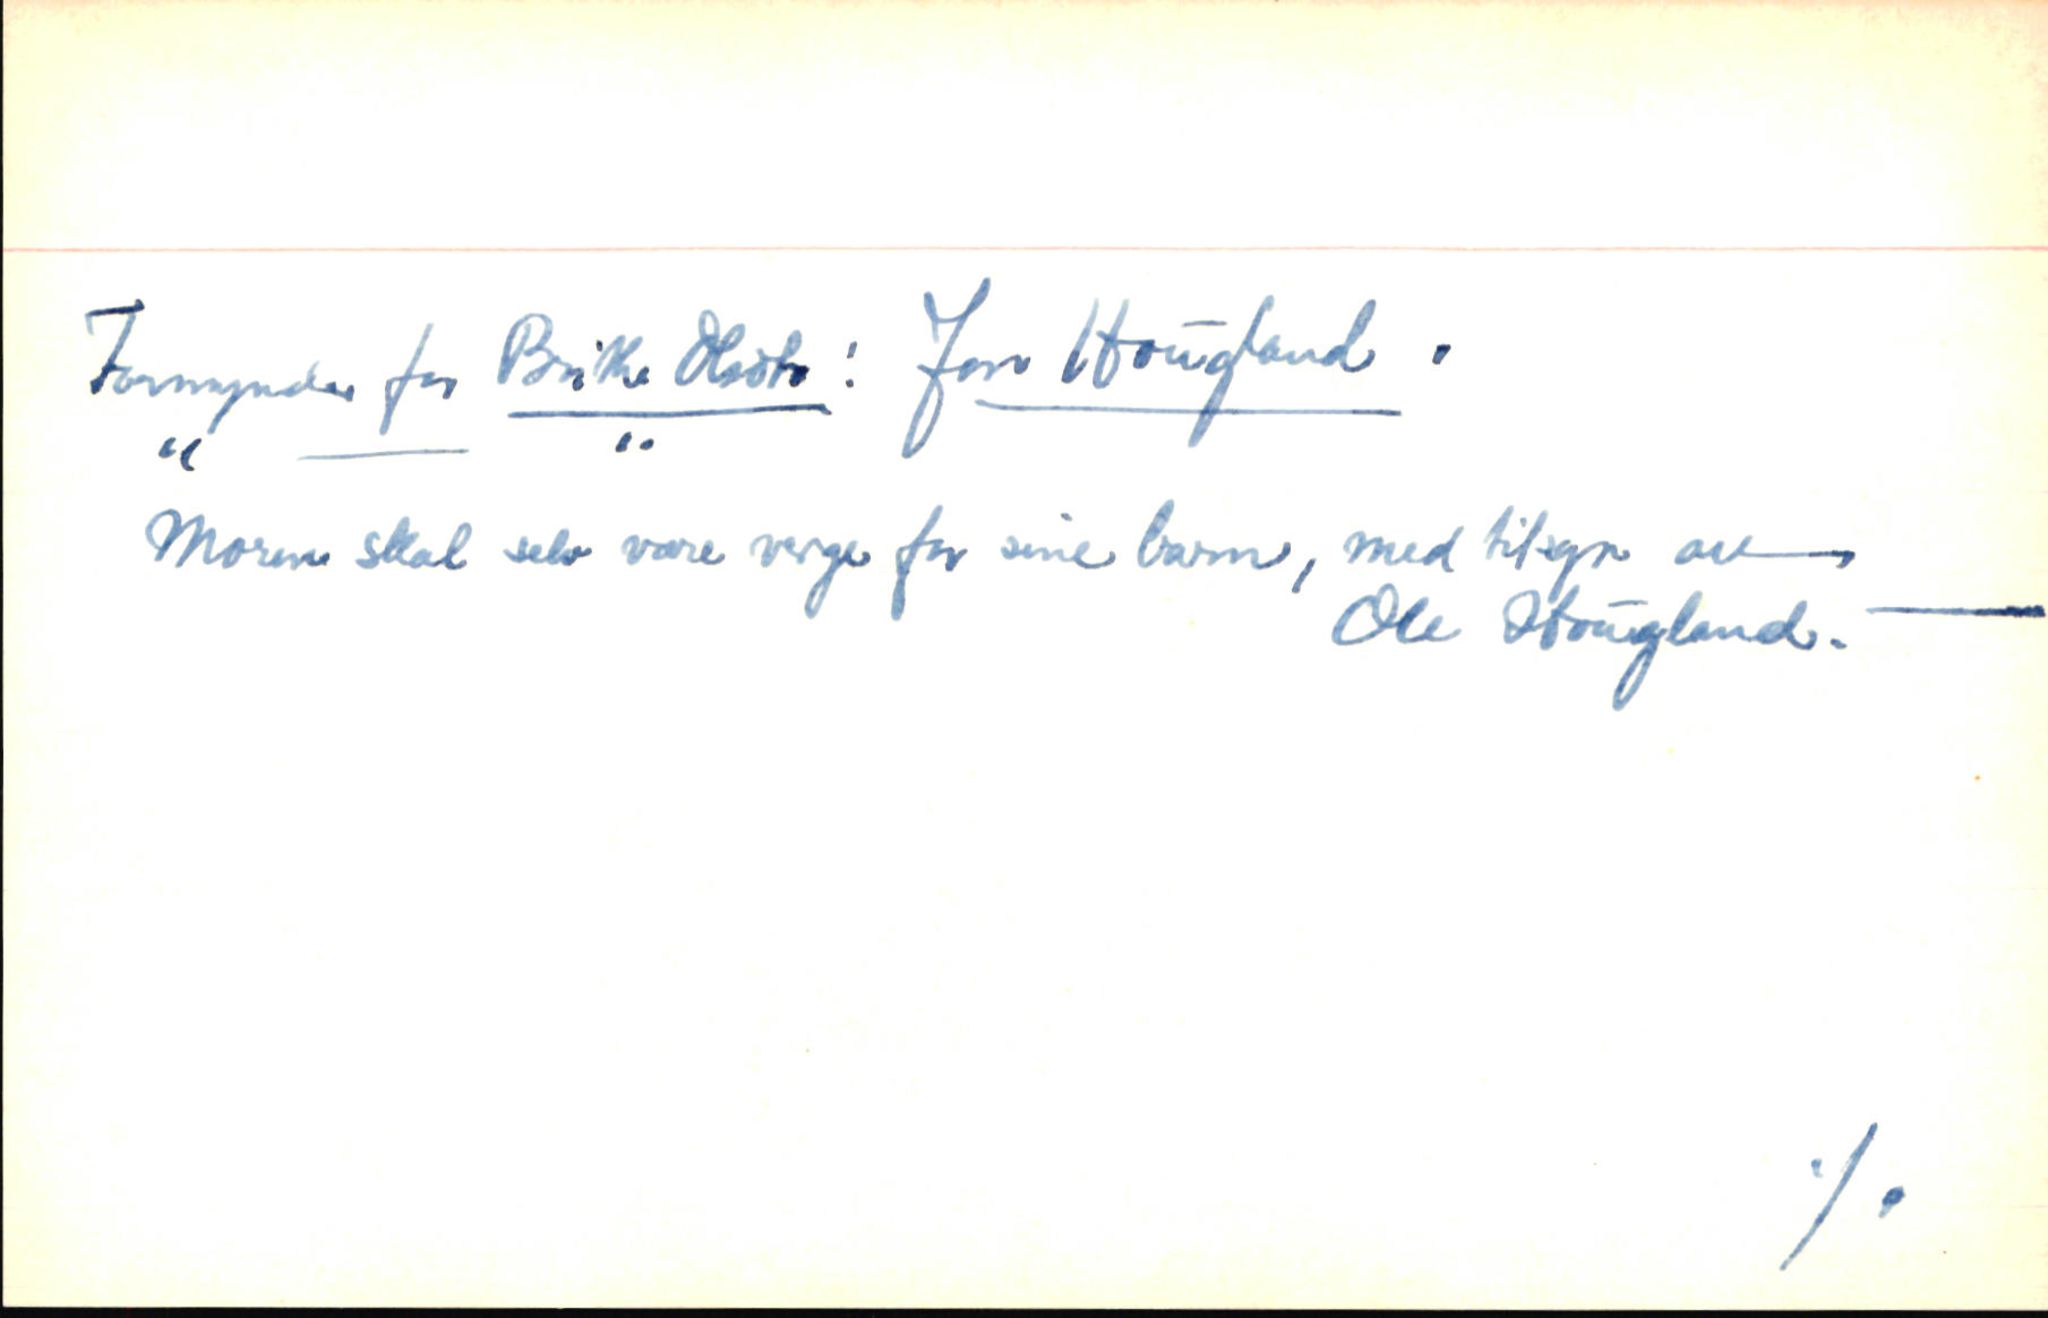 Formynder for Brithe Olsdtr: Jon Hoŭgland.
" — "
Moren skal selv være verge for sine barn, med tilsyn av
Ole Hoŭgland. —
./.